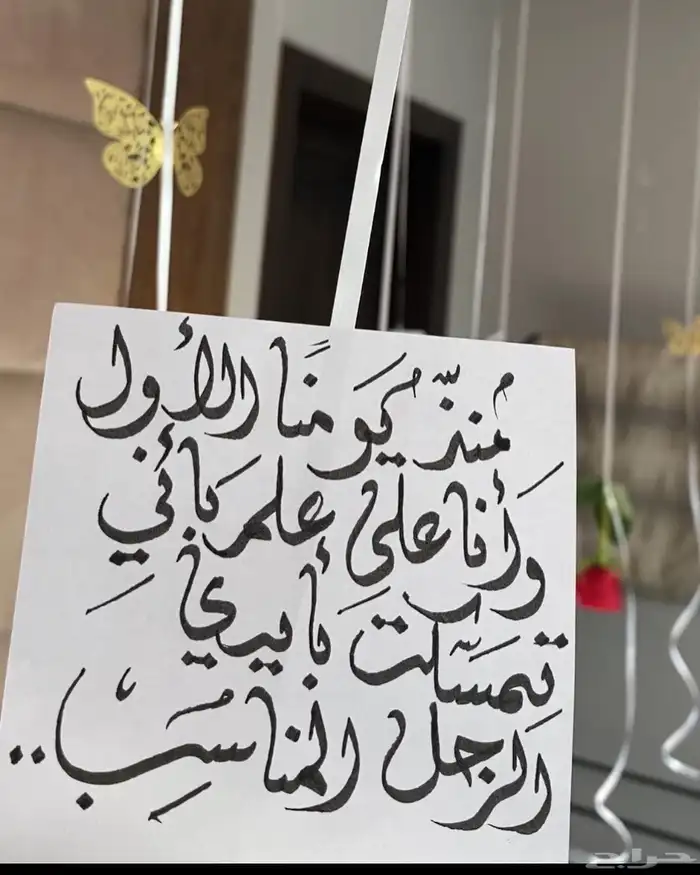 مُنذّ يَومنًا الأول
وَأنا على علم بأني
تمسّكت بأيدي
الرَجل المناسب..
حراج